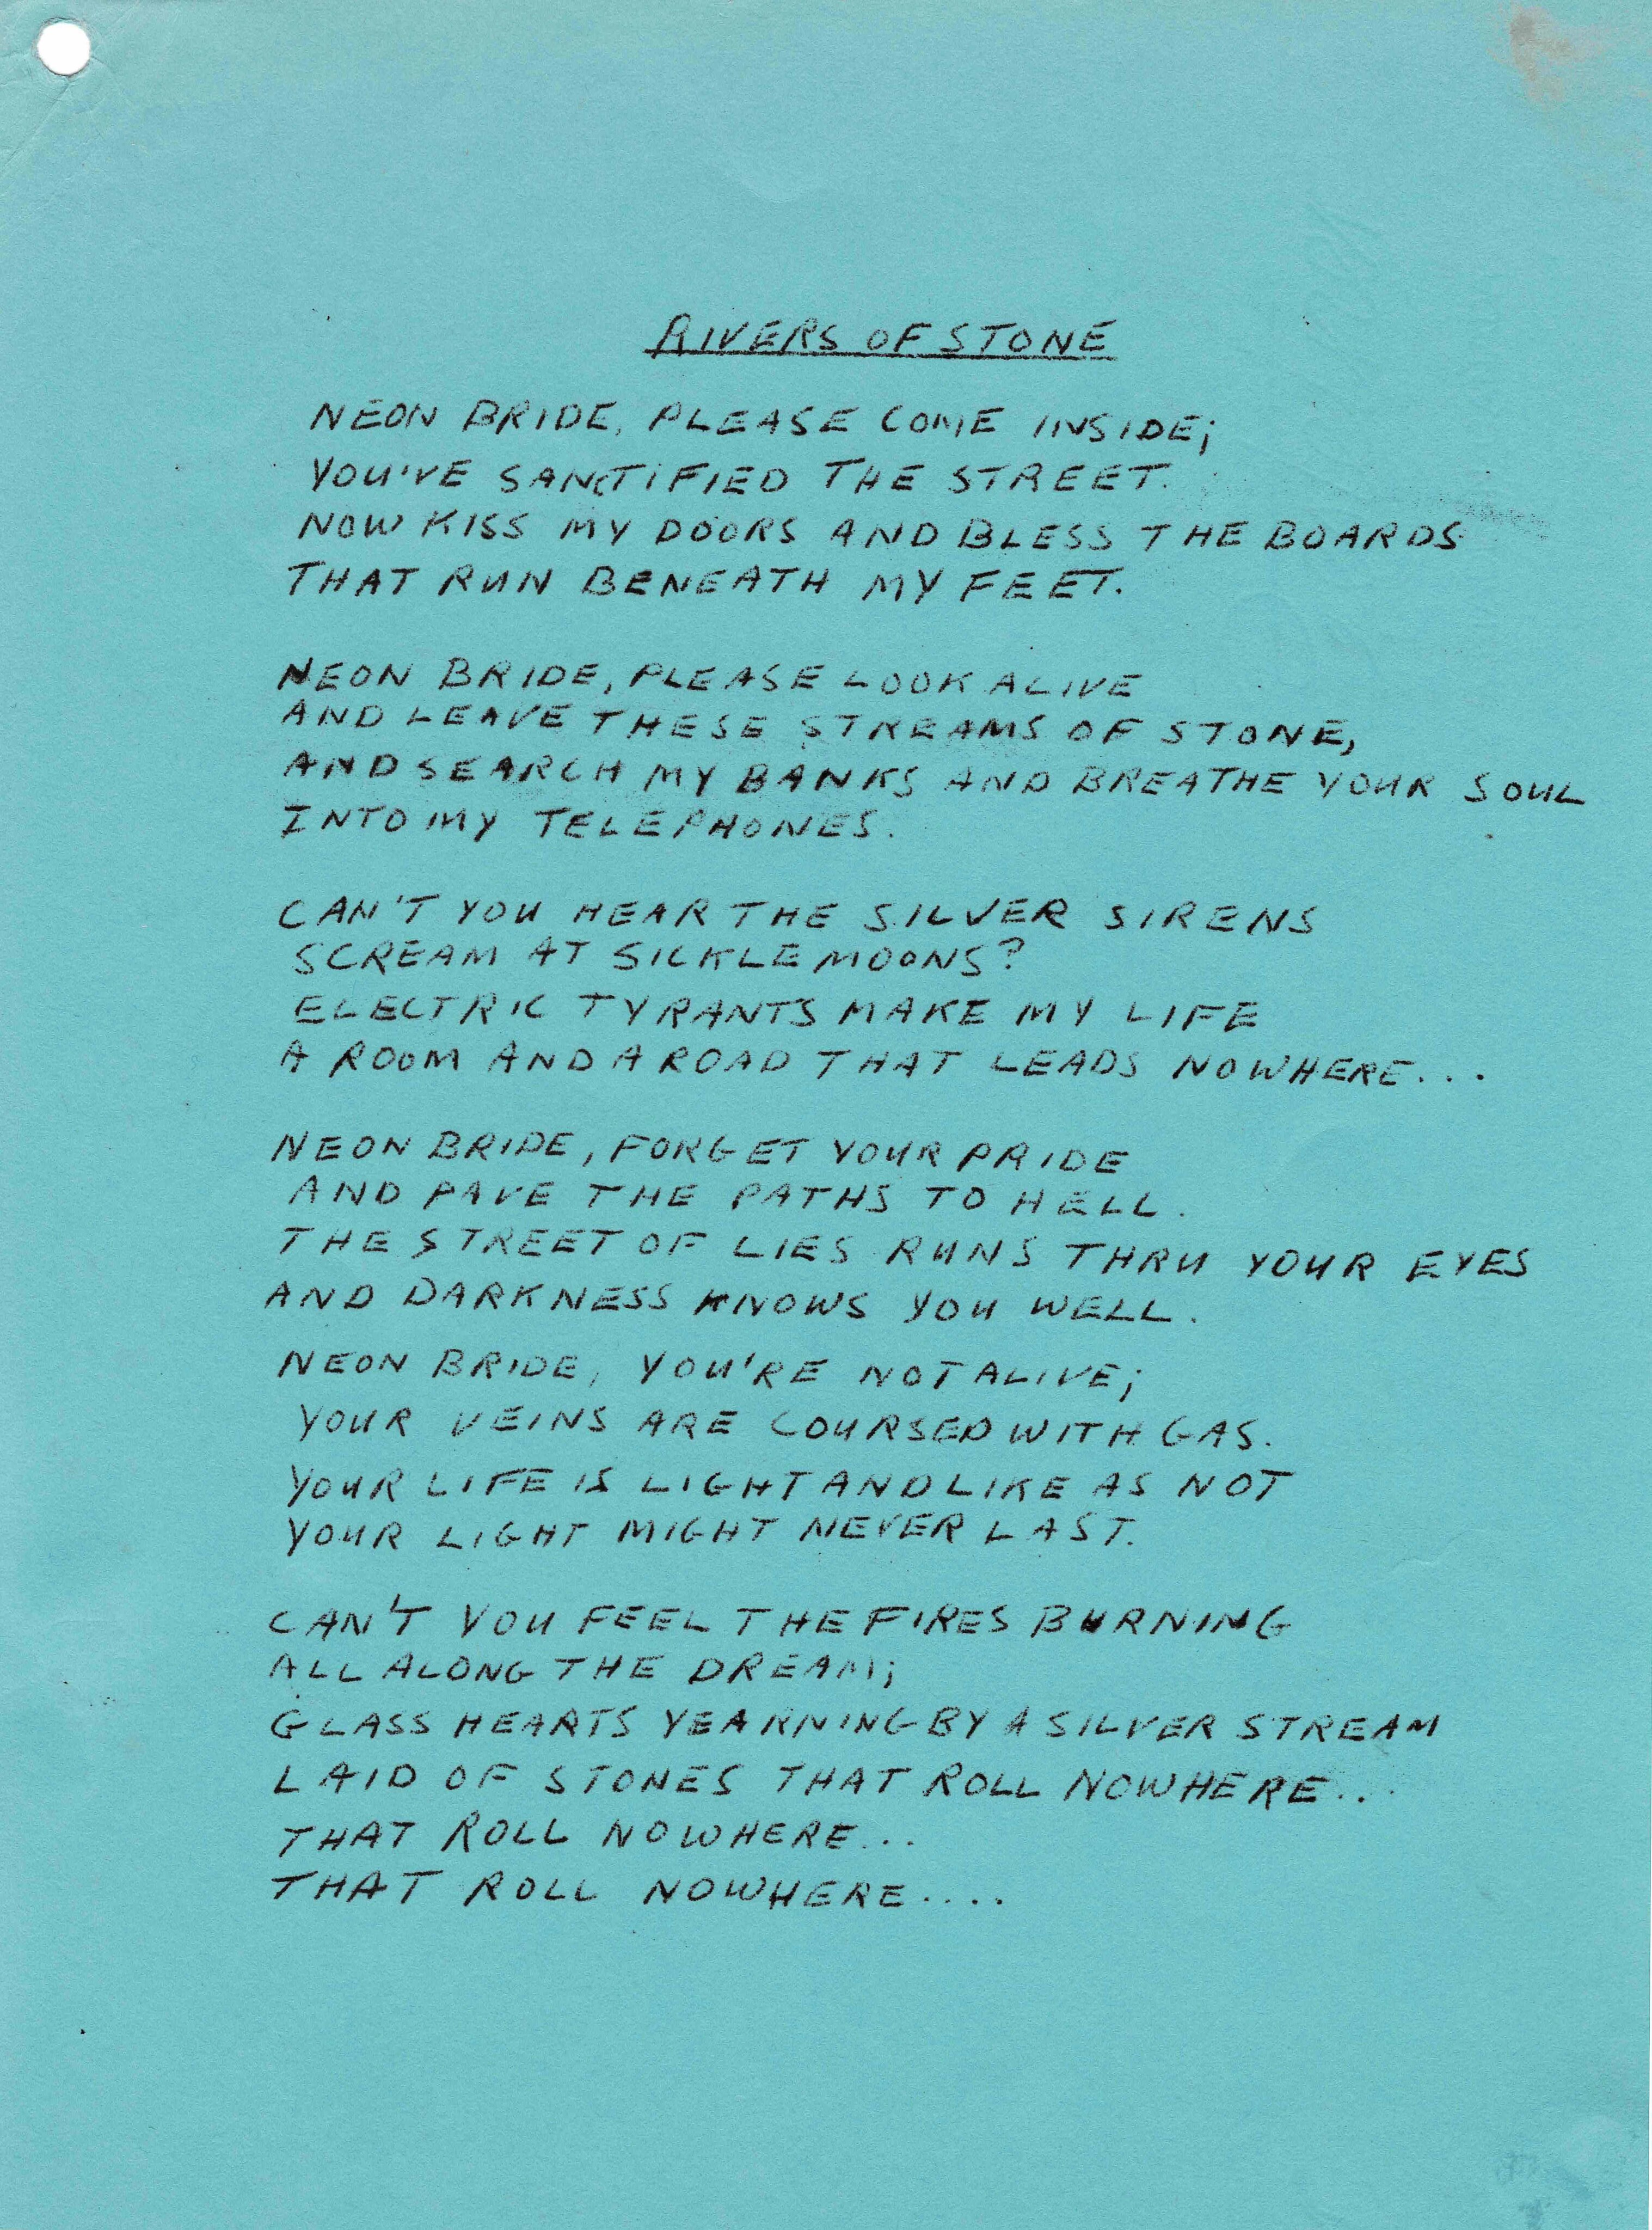 RIVERS OF STONE
NEON BRIDE, PLEASE COME INSIDE;
YOU'VE SANCTIFIED THE STREET.
NOW KISS MY DOORS AND BLESS THE BOARDS
THAT RUN BENEATH MY FEET.
NEON BRIDE, PLEASE LOOK ALIVE
AND LEAVE THESE STREAMS OF STONE,
AND SEARCH MY BANKS AND BREATHE YOUR SOUL
INTO MY TELEPHONES.
CAN'T YOU HEAR THE SILVER SIRENS
SCREAM AT SICKLE MOONS?
ELECTRIC TYRANTS MAKE MY LIFE
A ROOM AND A ROAD THAT LEADS NOWHERE...
NEON BRIDE, FORGET YOUR PRIDE
AND PAVE THE PATHS TO HELL.
THE STREET OF LIES RUNS THRU YOUR EYES
AND DARKNESS KNOWS YOU WELL.
NEON BRIDE, YOU'RE NOT ALIVE;
YOUR VEINS ARE COURSED WITH GAS.
YOUR LIFE IS LIGHT AND LIKE AS NOT
YOUR LIGHT MIGHT NEVER LAST.
CAN'T YOU FEEL THE FIRES BURNING
ALL ALONG THE DREAM;
GLASS HEARTS YEARNING BY A SILVER STREAM
LAID OF STONES THAT ROLL NOWHERE...
THAT ROLL NOWHERE...
THAT ROLL NOWHERE....